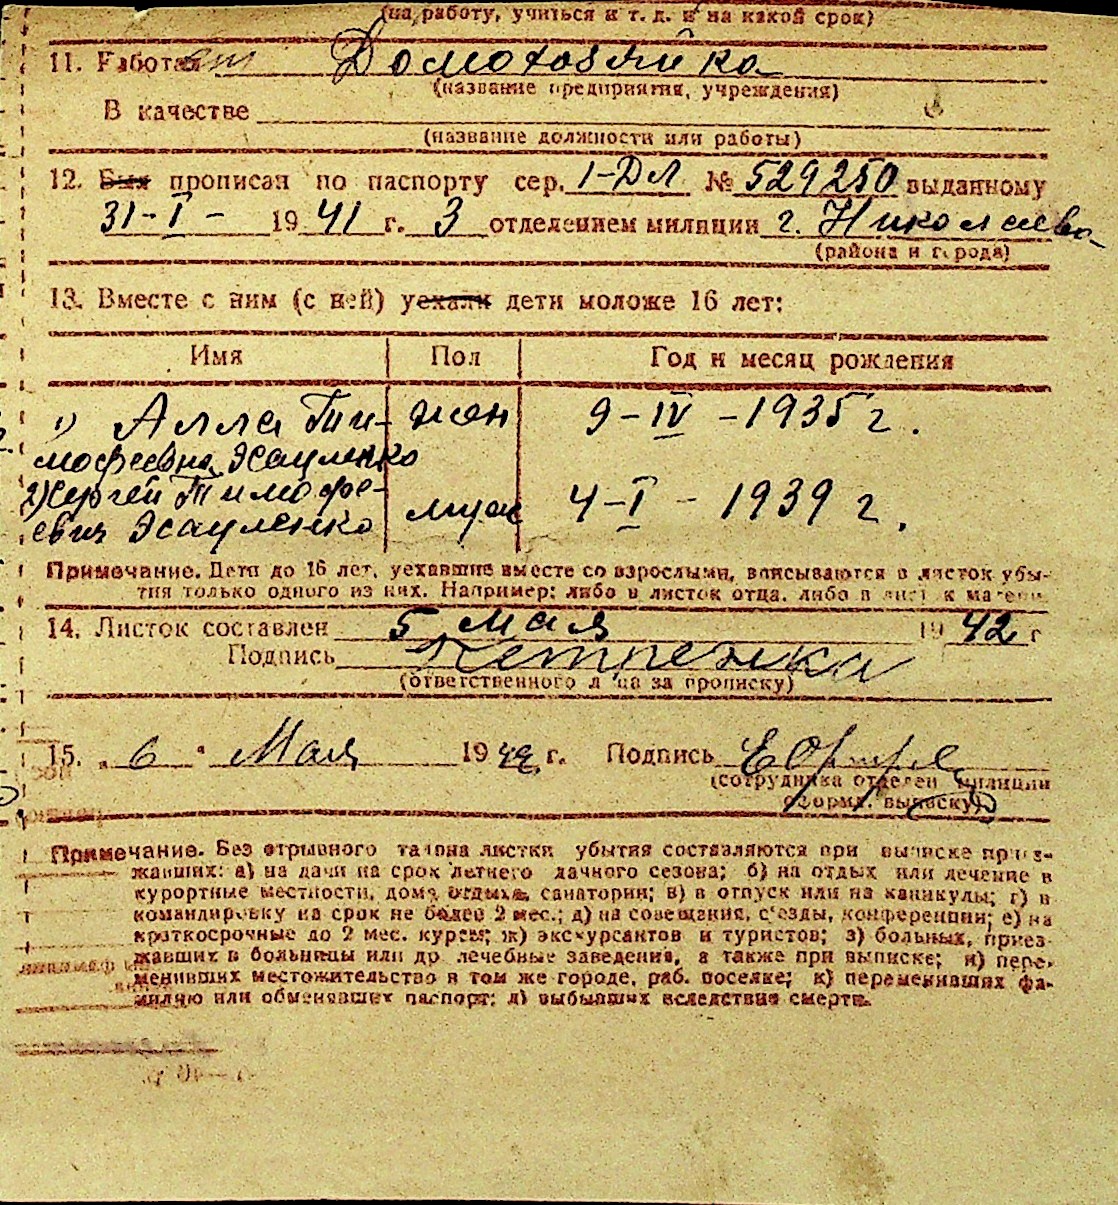 (на работу, учиться и т. д. и на какой срок)
11. Работает Домохозяйка
(название предприятия, учреждения)
В качестве
(название должности или работы)
12. Был прописан по паспорту сер. I-ДЛ № 529250 выданному
31-I- 1941 г. 3 отделением милиции г. Николаева
(района и города)
13. Вместе с ним (с ней) уехали дети моложе 16 лет:
Имя Пол Год и месяц рождения
1) Алла Ти- жен 9-IV-1935 г.
мофеевна Эсауленко
2) Сергей Тимофе- муж 4-I-1939 г.
евич Эсауленко
Примечание. Дети до 16 лет, уехавшие вместе со взрослыми, вписываются в листок убы-
тия только одного из них. Например: либо в листок отца, либо в лист к матери
14. Листок составлен 5 мая 1942 г
Подпись
(ответственного лица за прописку)
15. „ 6 " Мая 1942 г. Подпись
(сотрудника отделен милиции
оформ. выписку)
Примечание. Без отрывного талона листки убытия составляются при выписке приез-
жавших: а) на дачи на срок летнего дачного сезона; б) на отдых или лечение в
курортные местности, дома отдыха, санатории; в) в отпуск или на каникулы; г) в
командировку на срок не более 2 мес.; д) на совещания, с'езды, конференции; е) на
краткосрочные до 2 мес. курсы; ж) экскурсантов и туристов; з) больных, приез-
жавших в больницы или др лечебные заведения, а также при выписке; и) пере-
менивших местожительство в том же городе, раб. поселке; к) переменивших фа-
милию или обменявших паспорт; л) выбывших вследствие смерти.